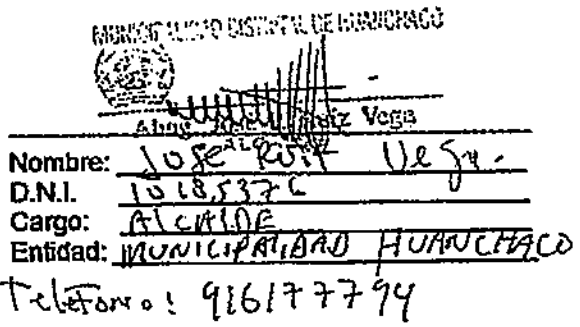 MUNICIPALIDAD DISTRITAL DE HUANCHACO
Abog. José Ruiz Vega
Nombre: José Ruiz Vega.
D.N.I. 10185376
Cargo: AlCALDE
Entidad: MUNICIPALIDAD HUANCHACO
Telefono: 916177794